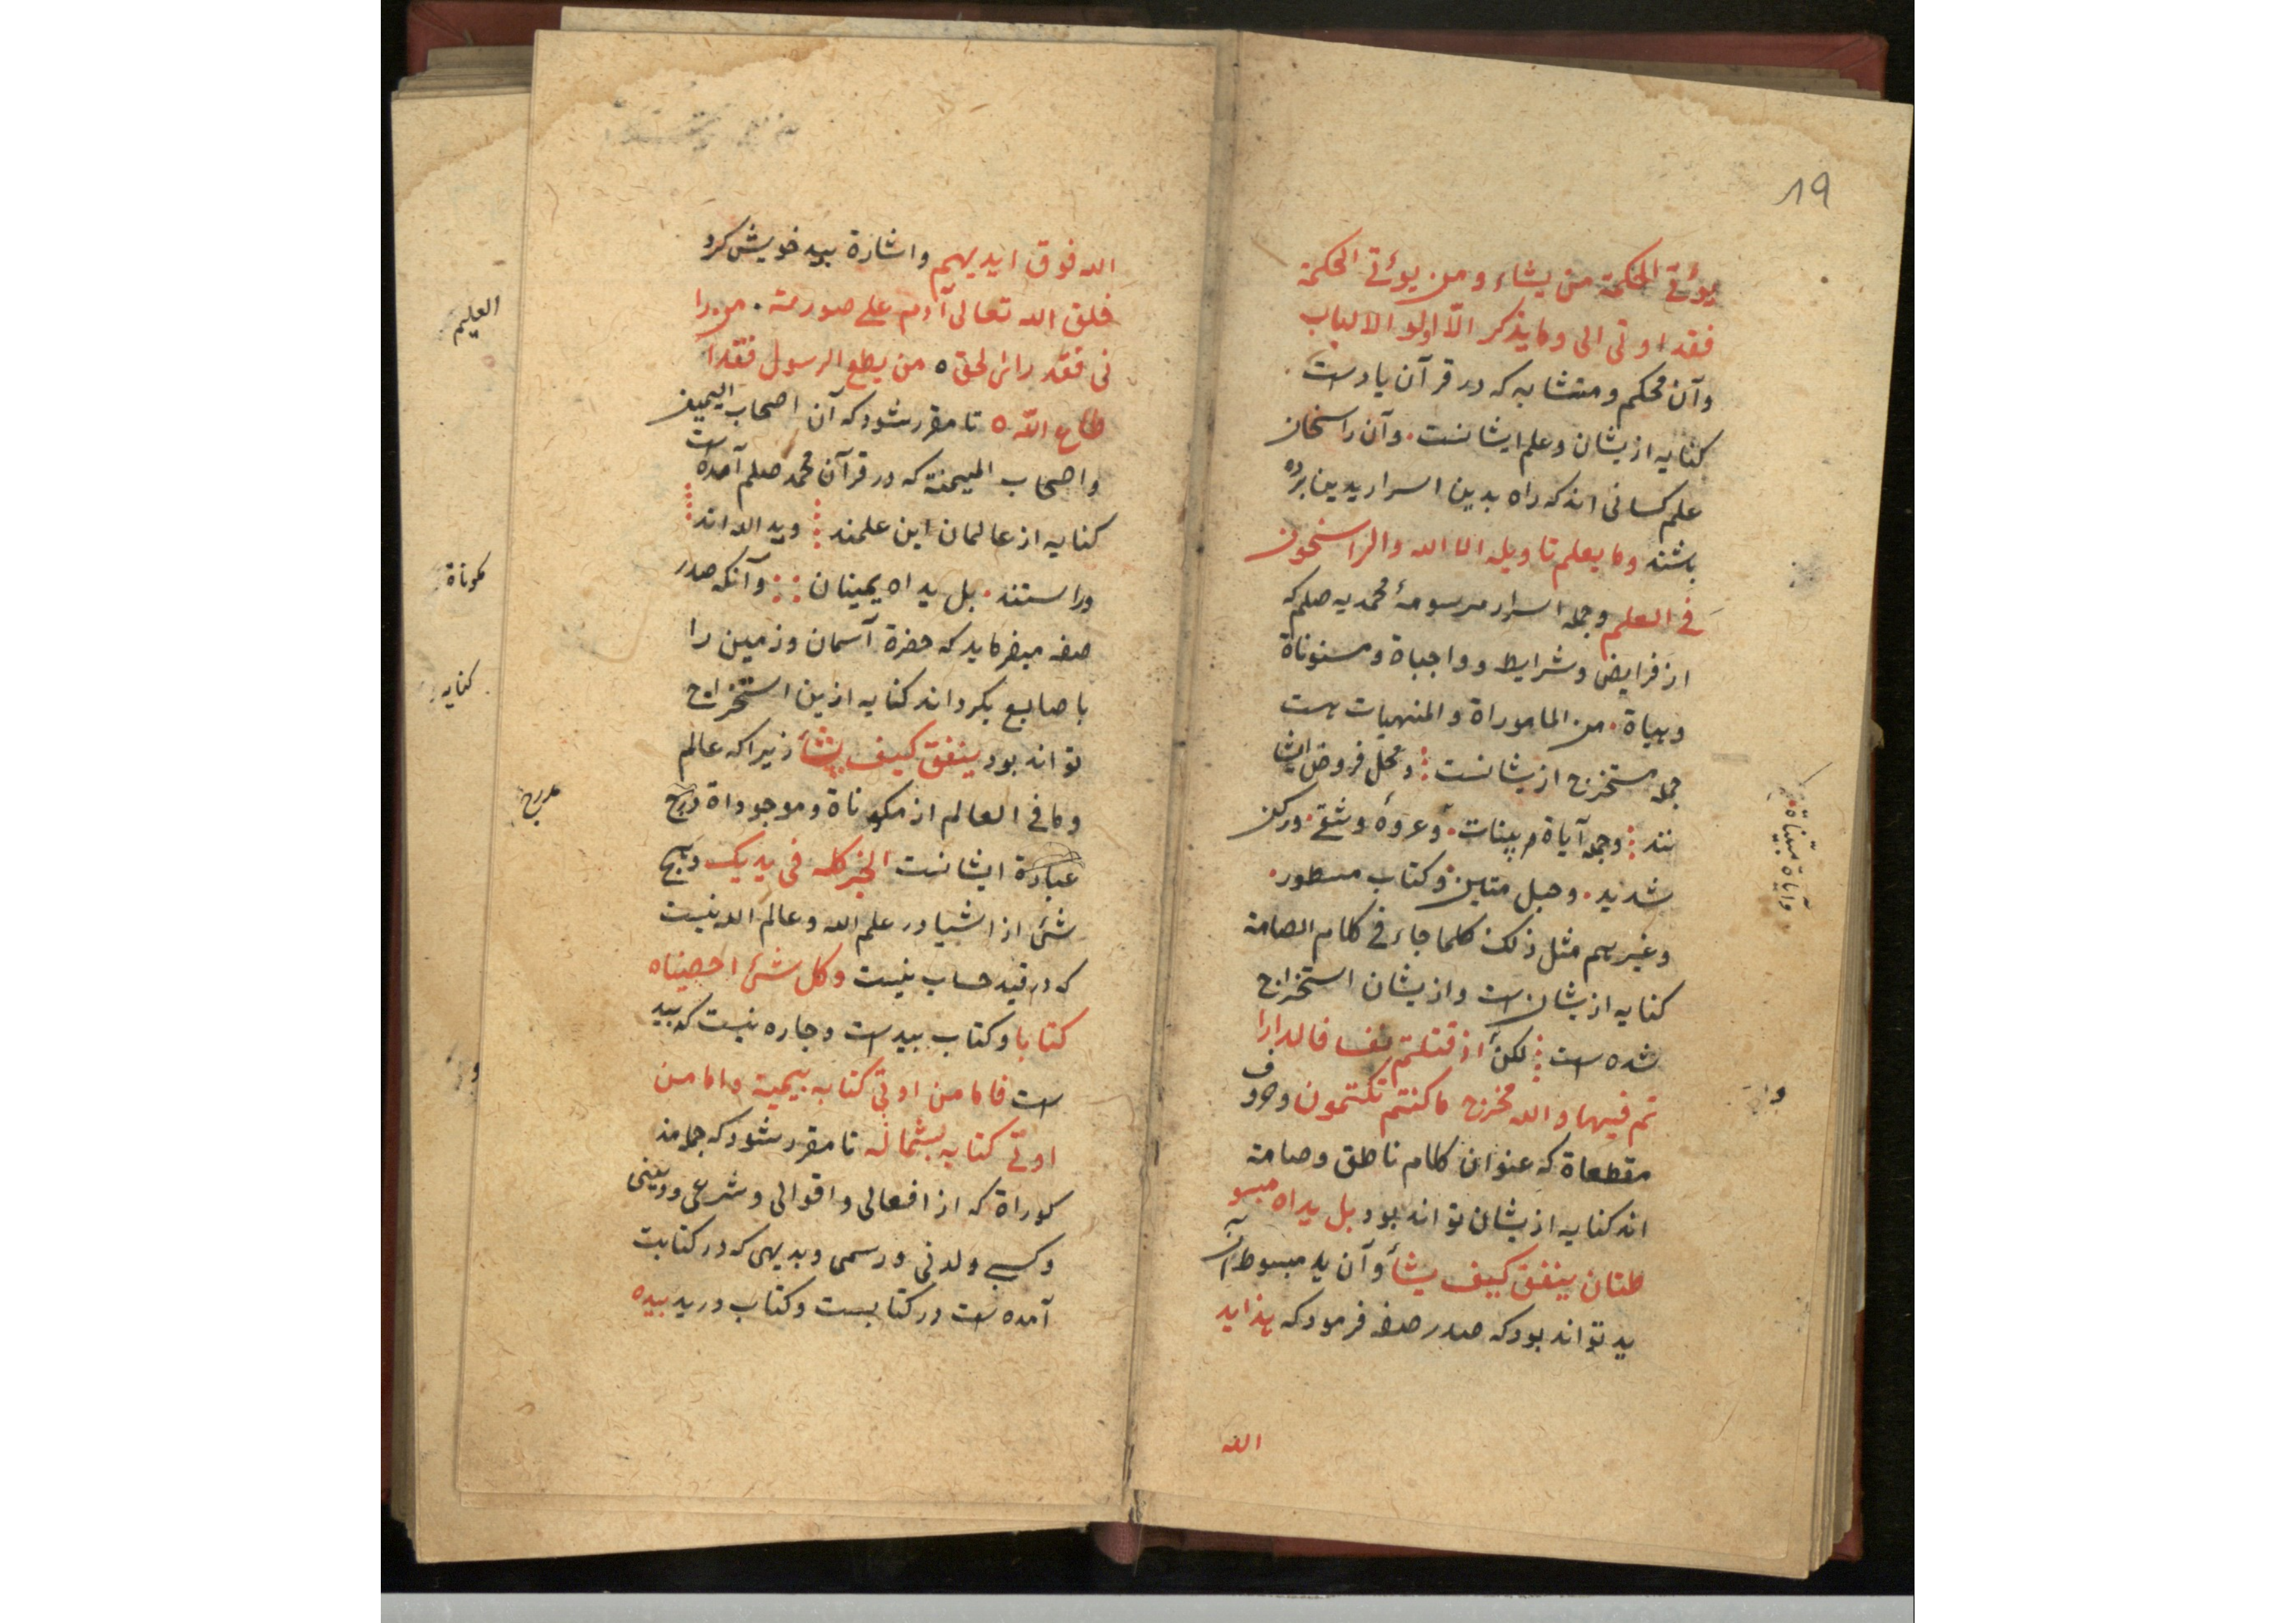 ۸۹
یوٴتی الحکمة من یشاء و من یوٴتی الحکمة
فقد اوتی الی وما یذکر الّا اولو الالباب
وآن محکم و متشابه که در قرآن یادست
کنایه ازیشان وعلم ایشانست. وآن راسخان
علم کسانی اند که راه بدین اسرار بدین برده
باشند وما یعلم تاویله الا الله والراسخون
فی العلم وجمله اسرار مرسومهٔ محمدیه صلم که
از فرایض و شرایط و واجباة و مسنوناة
وهیاة. من الماموراة والمنهیات است
جمله مستخرج ازیشانست: ومحل فروض ایشا
نند: وجمله آیاة بینات. وعروهٔ وثقی. ورکن
شدید. وحبل متین وکتاب مسطور.
وغیرهم مثل ذلک کلما جاء فی کلام الصامة
کنایه ازیشان است وازیشان استخراج
شده است: لکن اذ قتلتم نفسا فالدارا
تم فیها والله مخرج ما کنتم تکتمون وحروف
مقطعاة که عنوان کلام ناطق وصامة
اند کنایه ازیشان تواند بود بل یداه مبسو
طتان ینفق کیف یشأ وآن ید مبسوط آن
ید تواند بود که صدر صفه فرمود که هذا ید
الله
وآیاة بیّناة
وا
الله فوق ایدیهم واشارة بید خویش کرد
خلق الله تعالی آدم علی صورته. من را
نی فقد رائ لحق ٥ من یطع الرسول فقد ا
طاع اللّه ٥ تا مقرر شود که آن اصحاب الیمین
واصحاب المیمنة که در قرآن محمد صلم آمده است
کنایه از عالمان این علمند: وید الله اند
وراستند. بل یداه یمینان: وآنکه صدر
صفه میفرماید که حضرة آسمان وزمین را
باصابع بکرداند کنایه ازین استخراج
تواند بود ینفق کیف یشأ زیرا که عالم
وما فی العالم از مکوناة وموجوداة درج
عبارة ایشانست الخیر کله فی یدیک وهیچ
شئ از اشیا در علم الله وعالم الله نیست
که در قید حساب نیست وکل شئ احصیناه
کتابا وکتاب بیدست وچاره نیست که بید
است فاما من اوتی کتابه بیمینه واما من
اوتی کتابه بشماله تا مقرر شود که جمله مذ
کوراة که از افعالی واقوالی وشرعی ودینی
وکسبی ولدنی ورسمی وبدیهی که در کتابت
آمده است در کتابست وکتاب در ید بیده
العلیم
مکوناة
کنایه
مدرج